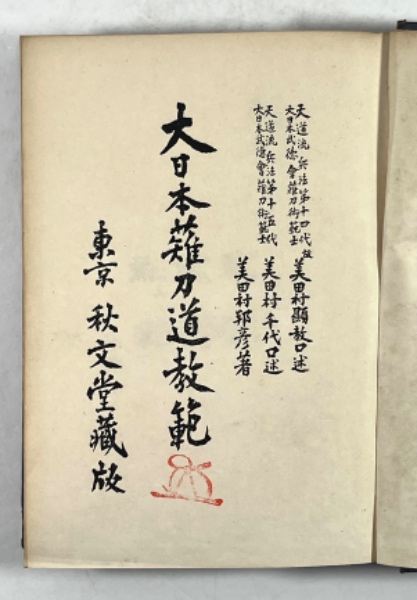 天道流兵法第十四代
大日本武德會薙刀術範士
故 美田村顯教口述
天道流兵法第十五代
大日本武德會薙刀術範士
美田村千代口述
美田村邦彦著
大日本薙刀道教範
東京 秋文堂藏版